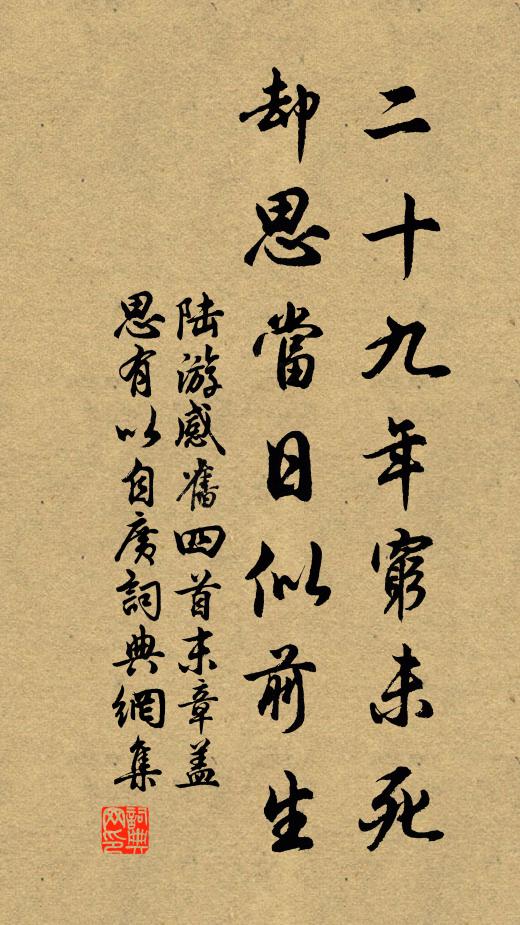 二十九年窮未死
却思當日似前生
陆游感舊四首末章盖
思有以自廣詞典網集
詞典网印